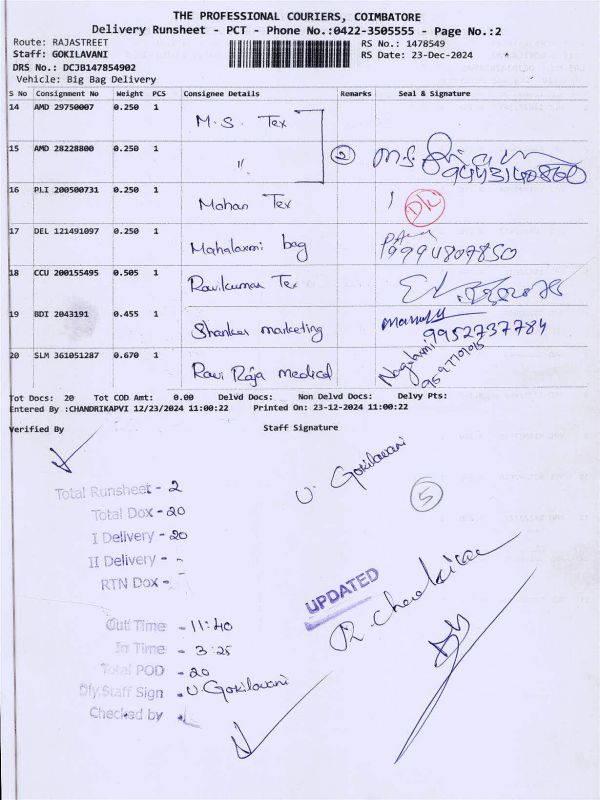 THE PROFESSIONAL COURIERS, COIMBATORE
Delivery Runsheet - PCT - Phone No.:0422-3505555 - Page No.:2
Route: RAJASTREET RS No.: 1478549
Staff: GOKILAVANI RS Date: 23-Dec-2024
DRS No.: DCJB147854902
Vehicle: Big Bag Delivery
S No Consignment No Weight PCS Consignee Details Remarks Seal & Signature
14 AMD 29750007 0.250 1 M.S. Tex
15 AMD 28228800 0.250 1 " 2 M.S.
16 PLI 200500731 0.250 1 Mohan Tex
17 DEL 121491097 0.250 1 Mahalaxmi bag
18 CCU 200155495 0.505 1 Ravikumar Tex
19 BDI 2043191 0.455 1 Shankar marketing 9952737784
20 SLM 361051287 0.670 1 Ravi Raja medical Nagalaxmi
Tot Docs: 20 Tot COD Amt: 0.00 Delvd Docs: Non Delvd Docs: Delvy Pts:
Entered By :CHANDRIKAPVI 12/23/2024 11:00:22 Printed On: 23-12-2024 11:00:22
Verified By Staff Signature
U. Gokilavani
5
Total Runsheet - 2
Total Dox - 20
I Delivery - 20
II Delivery - -
RTN Dox -
UPDATED
Out Time - 11:40
In Time - 3:25
Total POD - 20
Dly.Staff Sign - U Gokilavani
Checked by -